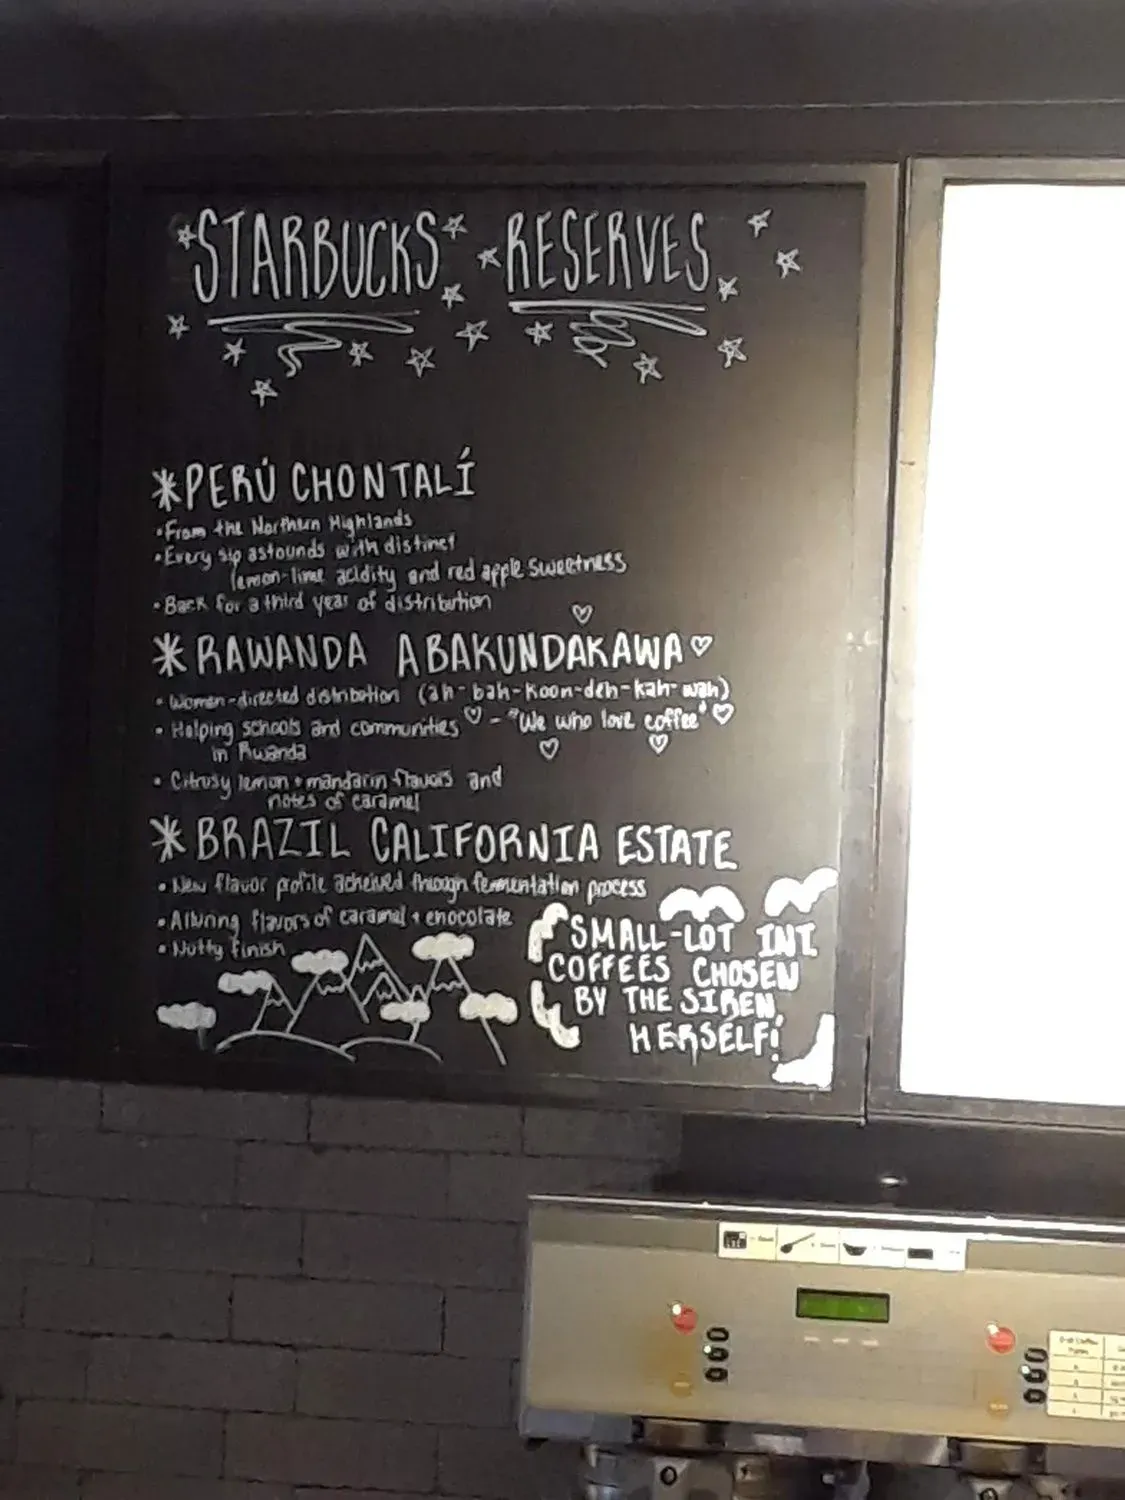 STARBUCKS RESERVES
*PERÚ CHONTALÍ
•From the Northern Highlands
•Every sip astounds with distinct
lemon-lime acidity and red apple sweetness
•Back for a third year of distribution
*RAWANDA ABAKUNDAKAWA♡
•Women-directed distribution (ah-bah-koon-deh-kah-wah)
•Helping schools and communities♡-"We who love coffee"♡
in Rwanda
•Citrusy lemon + mandarin flavors and
notes of caramel
*BRAZIL CALIFORNIA ESTATE
•New flavor profile acheived through fermentation process
•Alluring flavors of caramel + chocolate
•Nutty finish
SMALL-LOT INT.
COFFEES CHOSEN
BY THE SIREN,
HERSELF!